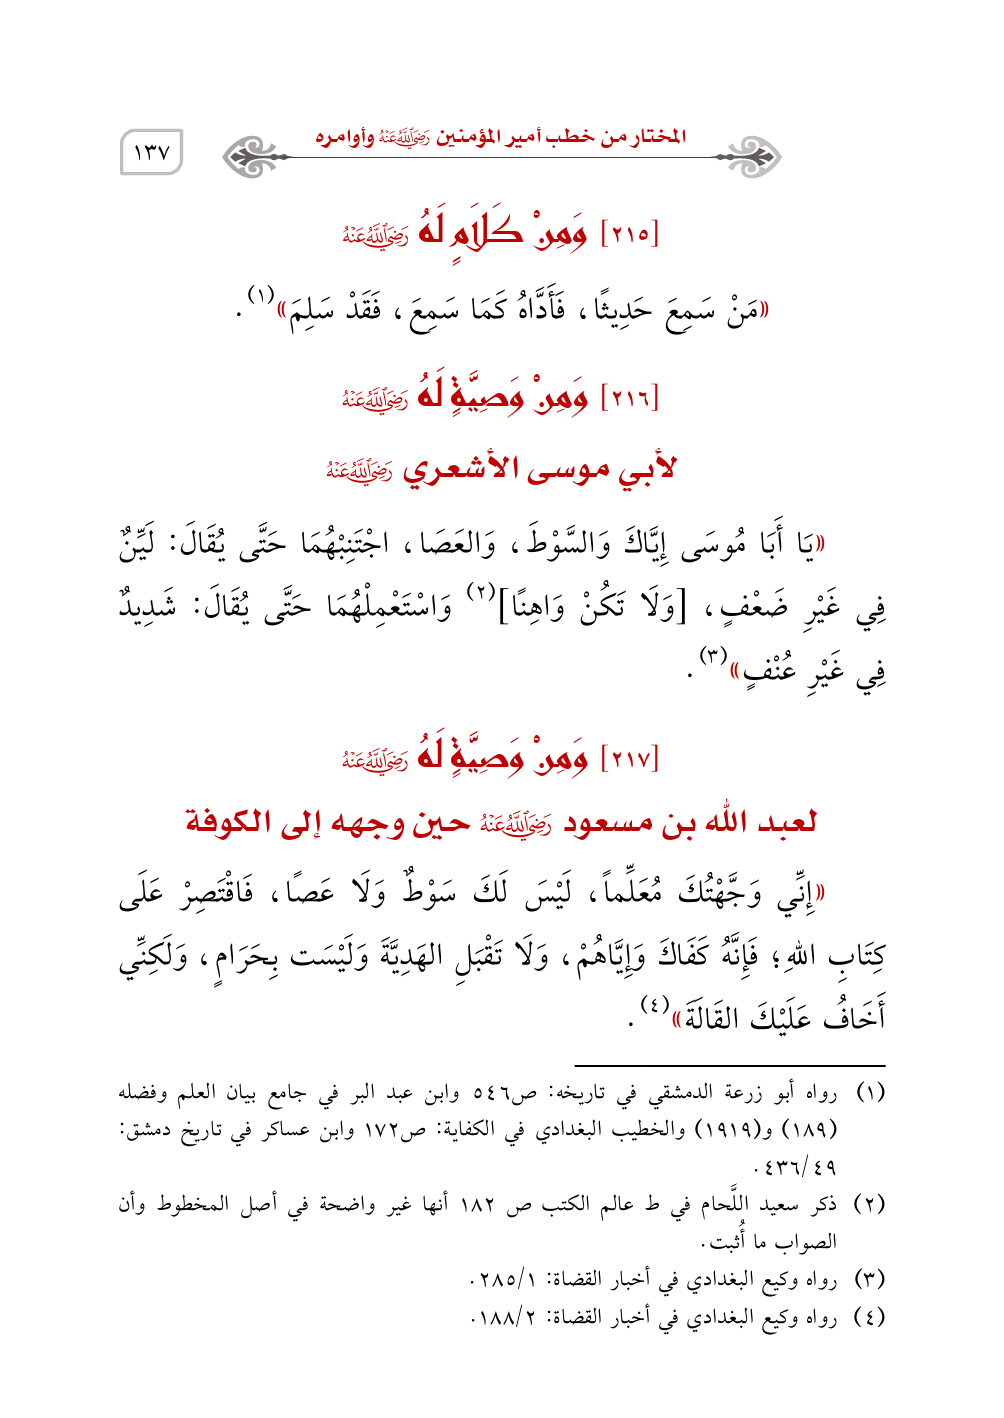 المختار من خطب أمير المؤمنين رَضِيَ اللَّهُ عَنْهُ وأوامره
١٣٧
[٢١٥] وَمِنْ كَلَامٍ لَهُ رَضِيَ اللَّهُ عَنْهُ
«مَنْ سَمِعَ حَدِيثًا، فَأَدَّاهُ كَمَا سَمِعَ، فَقَدْ سَلِمَ»(١).
[٢١٦] وَمِنْ وَصِيَّةٍ لَهُ رَضِيَ اللَّهُ عَنْهُ
لأبي موسى الأشعري رَضِيَ اللَّهُ عَنْهُ
«يَا أَبَا مُوسَى إِيَّاكَ وَالسَّوْطَ، وَالعَصَا، اجْتَنِبْهُمَا حَتَّى يُقَالَ: لَيِّنٌ
فِي غَيْرِ ضَعْفٍ، [وَلَا تَكُنْ وَاهِنًا](٢) وَاسْتَعْمِلْهُمَا حَتَّى يُقَالَ: شَدِيدٌ
فِي غَيْرِ عُنْفٍ»(٣).
[٢١٧] وَمِنْ وَصِيَّةٍ لَهُ رَضِيَ اللَّهُ عَنْهُ
لعبد الله بن مسعود رَضِيَ اللَّهُ عَنْهُ حين وجهه إلى الكوفة
«إِنِّي وَجَّهْتُكَ مُعَلِّماً، لَيْسَ لَكَ سَوْطٌ وَلَا عَصًا، فَاقْتَصِرْ عَلَى
كِتَابِ اللهِ؛ فَإِنَّهُ كَفَاكَ وَإِيَّاهُمْ، وَلَا تَقْبَلِ الهَدِيَّةَ وَلَيْسَت بِحَرَامٍ، وَلَكِنِّي
أَخَافُ عَلَيْكَ القَالَةَ»(٤).
(١) رواه أبو زرعة الدمشقي في تاريخه: ص٥٤٦ وابن عبد البر في جامع بيان العلم وفضله
(١٨٩) و(١٩١٩) والخطيب البغدادي في الكفاية: ص١٧٢ وابن عساكر في تاريخ دمشق:
٤٣٦/٤٩.
(٢) ذكر سعيد اللَّحام في ط عالم الكتب ص ١٨٢ أنها غير واضحة في أصل المخطوط وأن
الصواب ما أُثبت.
(٣) رواه وكيع البغدادي في أخبار القضاة: ٢٨٥/١.
(٤) رواه وكيع البغدادي في أخبار القضاة: ١٨٨/٢.